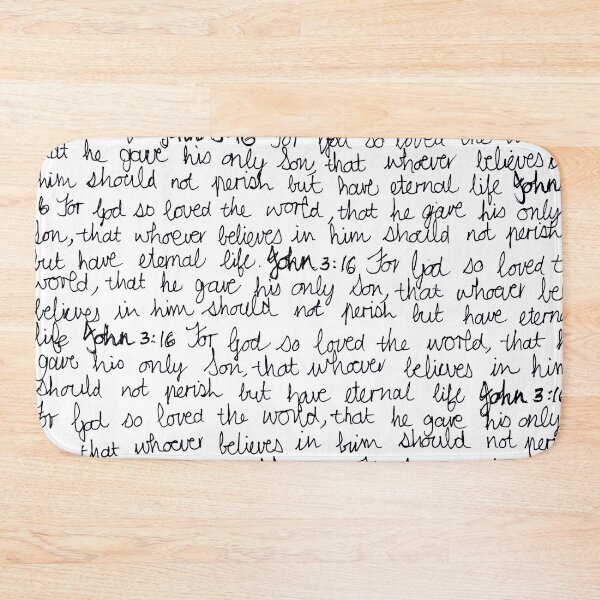 John 3:16 For God so loved the
at he gave his only Son, that whoever believes
him should not perish but have eternal life John
6 For God so loved the world, that he gave his only
son, that whoever believes in him should not perish
but have eternal life. John 3:16 For God so loved t
world, that he gave his only Son, that whoever be
believes in him should not perish but have etern
life John 3:16 For God so loved the world, that h
gave his only Son, that whoever believes in him
should not perish but have eternal life John 3:16
For God so loved the world, that he gave his only
that whoever believes in him should not per